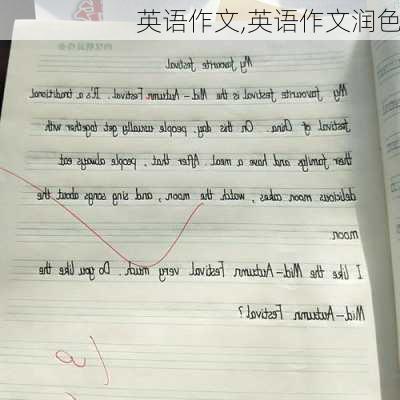 英语作文,英语作文润色
My favourite festival
My favourite festival is the Mid-Autumn Festival. It's a traditional
festival of China. On this day, people usually get together with
their family and have a meal. After that, people always eat
delicious moon cakes, watch the moon, and sing songs about the
moon.
I like the Mid-Autumn Festival very much. Do you like the
Mid-Autumn Festival?